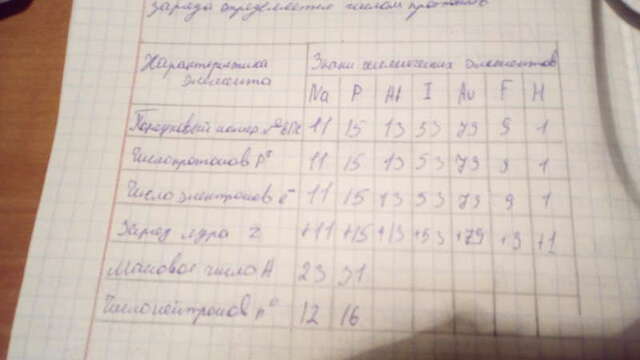 заряда определяется числом протонов
Характеристика элемента Знаки химических элементов
Na P Al I Au F H
Порядковый номер 11 15 13 53 79 9 1
Число протонов p⁺ 11 15 13 53 79 9 1
Число электронов e⁻ 11 15 13 53 79 9 1
Заряд ядра Z +11 +15 +13 +53 +79 +9 +1
Массовое число A 23 31
Число нейтронов n⁰ 12 16